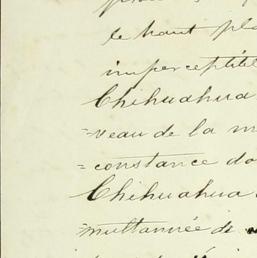 le haut pla
imperceptible
Chihuahua
=veau de la m
=constance do
Chihuahua
=multannée de